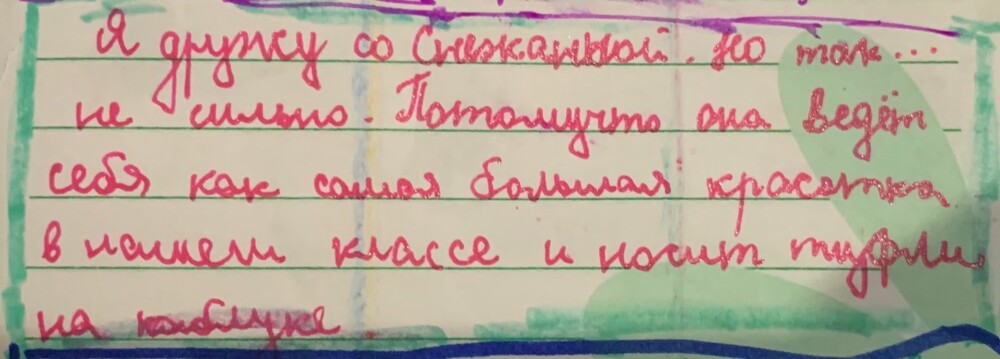 Я дружу со Снежанной. Но так...
не сильно. Потомучто она ведёт
себя как самая большая красотка
в нашем классе и носит туфли
на каблуке.